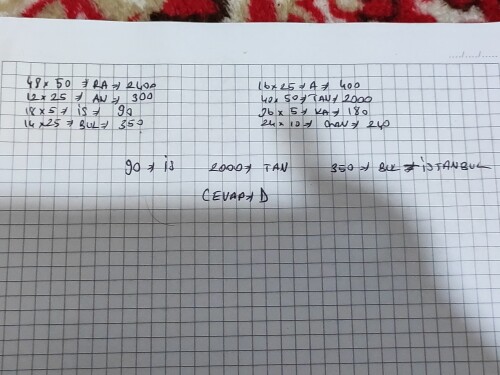 48 x 50 → RA → 2400
12 x 25 → AN → 300
18 x 5 → İS → 90
14 x 25 → BUL → 350
16 x 25 → A → 400
40 x 50 → TAN → 2000
36 x 5 → KA → 180
24 x 10 → → 240
90 → İS 2000 → TAN 350 → BUL → İSTANBUL
CEVAP → D